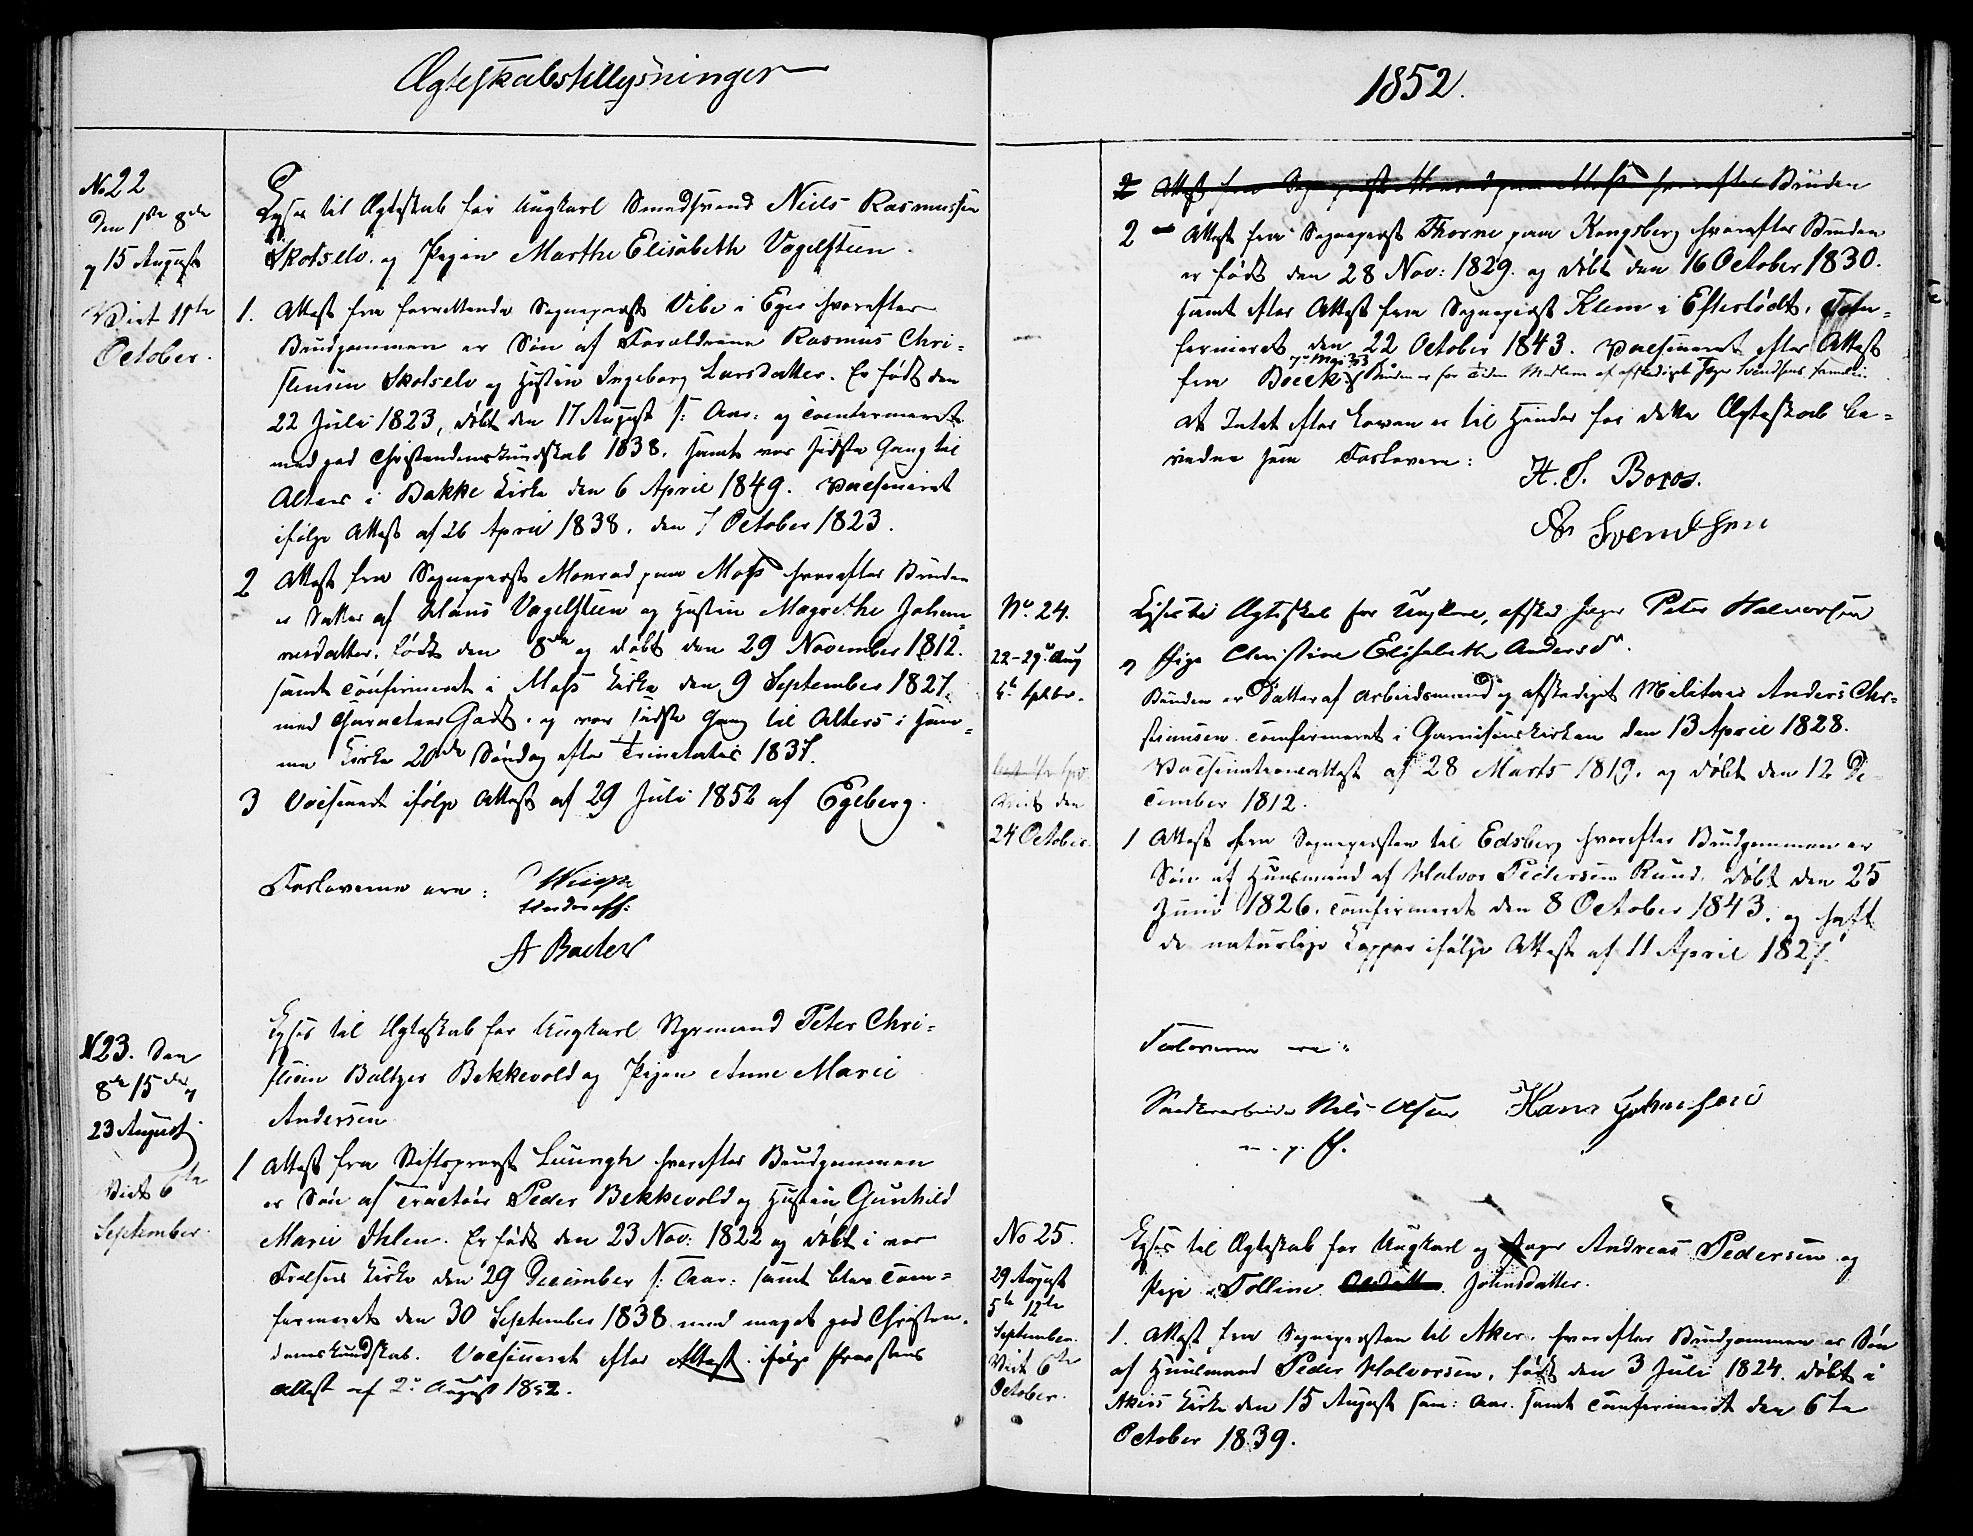 Ægteskabstillysninger
No 22
Den 1ste 8de
og 15 August
Viet 11te
October.
Lyses til Ægteskab for Ungkarl Smedsvend Niels Rasmussen
Skotselv. og Pigen Marthe Elisabeth Vogelsteen.
1. Attest fra forrettende Sognepræst Vibe i Eger hvorefter
Brudgommen er Søn af Forældrene Rasmus Chri-
stensen Skotselv og Hustru Ingeborg Larsdatter. Er født den
22 Juli 1823, døbt den 17 August s: Aar: og Confirmeret
med god Christendomskundskab 1838. samt var sidste Gang til
Alters i Bakke Kirke den 6 April 1849. Vaccineret
ifølge Attest af 26 April 1838. den 7 October 1823.
2 Attest fra Sognepræst Monrad paa Moss hvorefter Bruden
er Datter af Hans Vogelsteen og Hustru Magrethe Johan-
nesdatter. født den 8de og døbt den 29 November 1812.
samt Confirmeret i Moss Kirke den 9 September 1827.
med Caracteer Godt. og var sidste Gang til Alters i sam-
me Kirke 20de Søndag efter Trinitatis 1837.
3 Vaccineret ifølge Attest af 29 Juli 1852 af Egeberg.
Forloverne ere:
A Bader
N 23. Den
8de 15de og
23 August
Viet 6te
September.
Lyses til Ægteskab for Ungkarl Styrmand Peter Chri-
stian Baltzer Bekkevold og Pigen Anne Marie
Andersen
1 Attest fra Stiftsprovst Luungh hvorefter Brudgommen
er Søn af Tracteur Peder Bekkevold og Hustru Gunhild
Marie Ihlen. Er født den 23 Nov: 1822 og døbt i vor
Frelsers Kirke den 29 December s: Aar: samt blev Con-
firmeret den 30 September 1838 med meget god Christen-
domskundskab. Vaccineret efter Attest. ifølge Provstens
Attest af 2. August 1852.
1852.
2 Attest fra Sognepræst Monrad paa Moss hvorefter Bruden
2 Attest fra Sognepræst Thorne paa Kongsberg hvorefter Bruden
er født den 28 Nov: 1829. og døbt den 16 October 1830.
samt efter Attest fra Sognepræst Klem i Efterlødt. Con-
firmeret den 22 October 1843. Vaccineret efter Attest
fra Boeck 7 Mai 33 Bruden er for Tiden Medlem af afskediget Jæger Svendsens Familie.
At Intet efter Loven er til Hinder for dette Ægteskab be-
vidner som Forlovere:
H. T. Boros.
Svendsen
No. 24.
22-29 Aug
5te Septbr.
Viet den
24 October.
Lyses til Ægteskab for Ungkarl, afsked Jæger Peter Halvorsen
og Pige Christine Elisabeth Andersdr.
Bruden er Datter af Arbeidsmand og afskediget Militair Anders Chr-
stiansen Confirmeret i Garnisonskirken den 13 April 1828.
Vaccinationsattest af 28 Marts 1819. og døbt den 12 De-
cember 1812.
1 Attest fra Sognepræsten til Edsberg hvorefter Brudgommen er
Søn af Huusmand af Halvor Pedersen Ruud. døbt den 25
Juni 1826. Confirmeret den 8 October 1843. og haft
de naturlige Kopper ifølge Attest af 11 April 1827.
Forloverne ere:
Niels Olsen Hans Johnsen
m. p. P.
No 25.
29 August
5te 12te
September.
Viet 6te
October.
Lyses til Ægteskab for Ungkarl og Jæger Andreas Pedersen og
Pige Polline Johnsdatter.
1. Attest fra Sognepræsten til Aker. hvorefter Brudgommen er Søn
af Huusmand Peder Halvorsen. født den 3 Juli 1824. døbt i
Akers Kirke den 15 August sam: Aar. samt Confirmeret den 6te
October 1839.